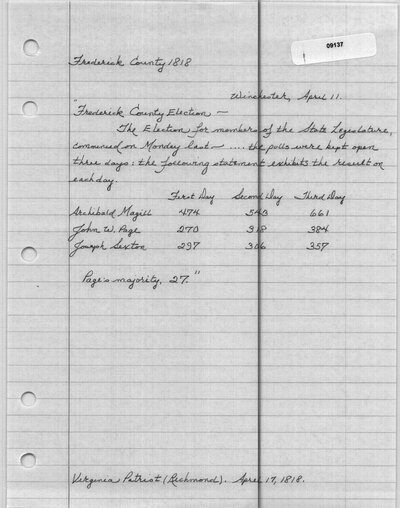 09137
Frederick County 1818
Winchester, April 11.
"Frederick County Election —
The Election for members of the State Legislature,
commenced on Monday last — .... the polls were kept open
three days: the following statement exhibits the result on
each day.
First Day Second Day Third Day
Archibald Magill 474 540 661
John W. Page 270 318 384
Joseph Sexton 297 306 357
Page's majority, 27."
Virginia Patriot (Richmond). April 17, 1818.